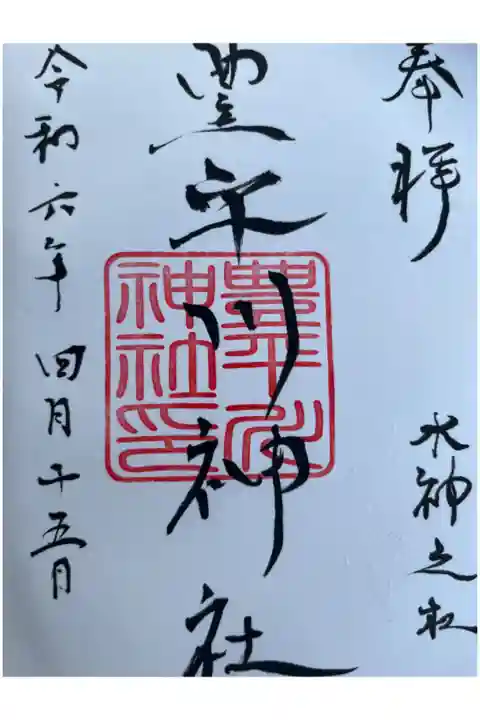 奉拝
水神之杜
豊平川神社
豊平川
神社印
令和六年四月十五日